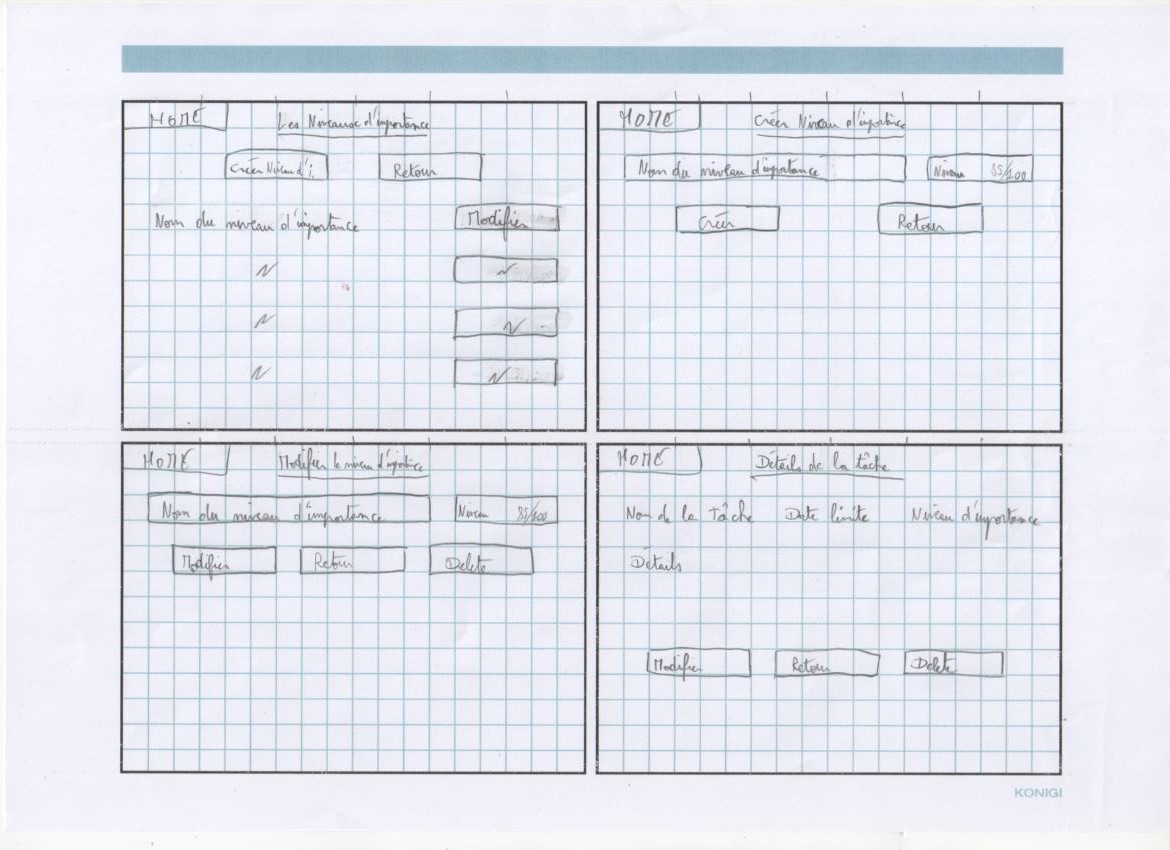 HOME
Les Niveaux d'importance
Créer Niveau d'i.
Retour
Nom du niveau d'importance
Modifier
HOME
Créer Niveau d'importance
Nom du niveau d'importance
Niveau 85/100
Créer
Retour
HOME
Modifier le niveau d'importance
Nom du niveau d'importance
Niveau 85/100
Modifier
Retour
Delete
HOME
Détails de la tâche
Nom de la tâche Date limite Niveau d'importance
Détails
Modifier
Retour
Delete
KONIGI